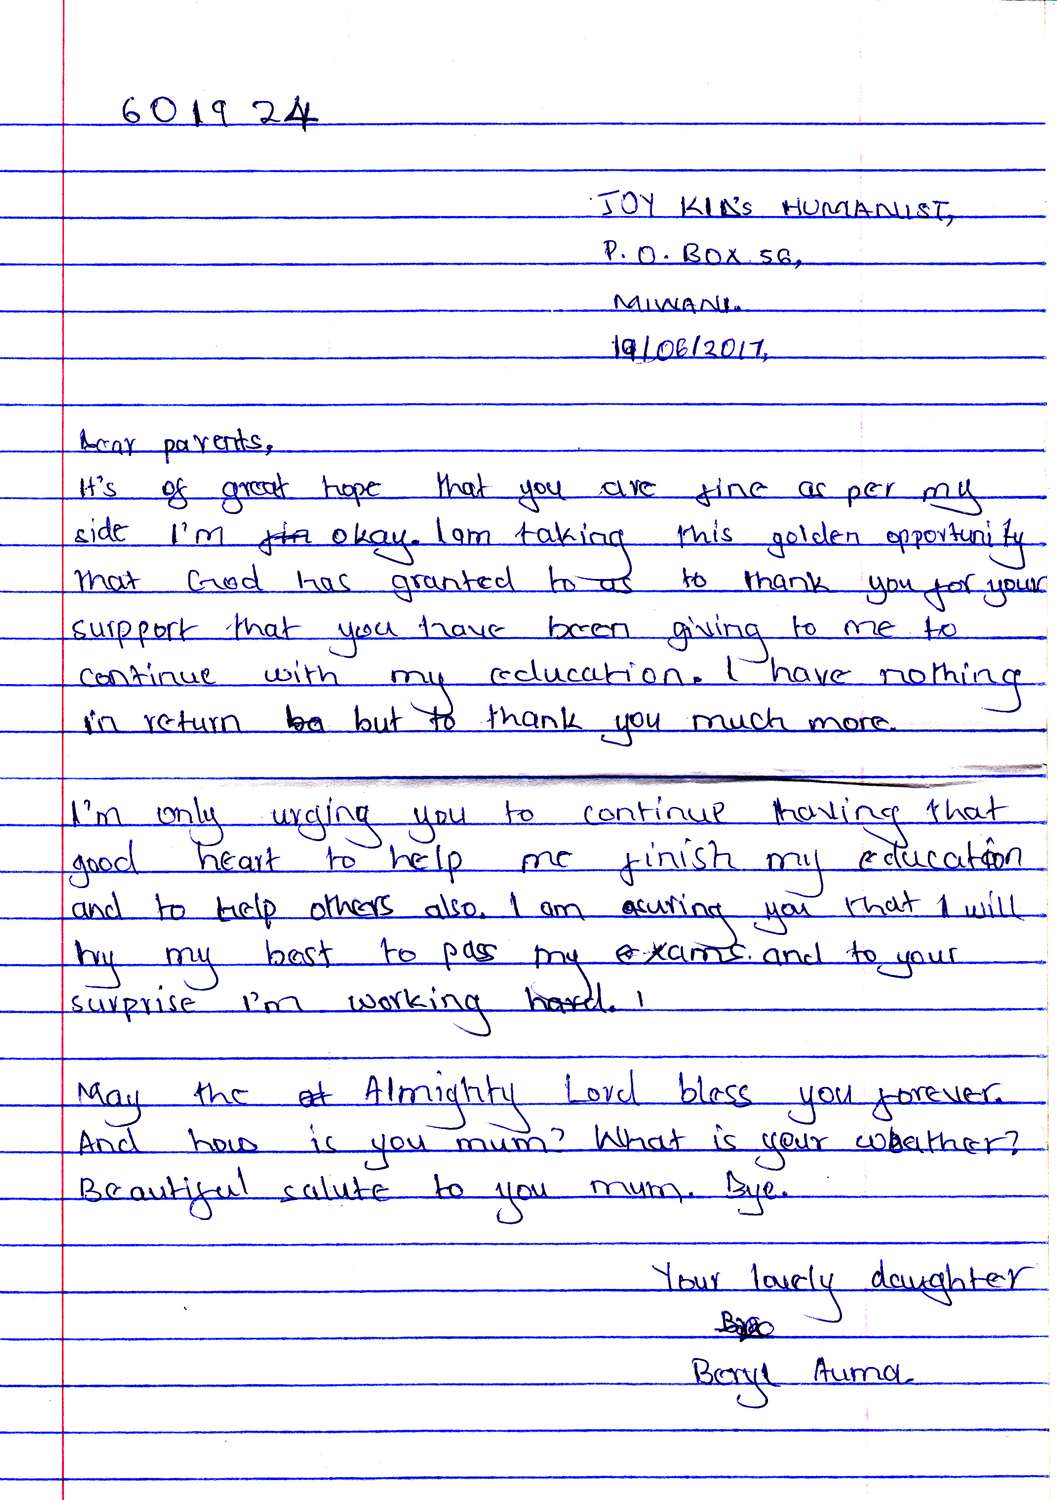 601924
JOY KIN's HUMANIST,
P. O. BOX 56,
MIWANI.
19/06/2017,
Dear parents,
It's of great hope that you are fine as per my
side I'm fin okay. I am taking this golden opportunity
that God has granted to us to thank you for your
surpport that you have been giving to me to
continue with my education. I have nothing
in return ba but to thank you much more.
I'm only urging you to continue having that
good heart to help me finish my education
and to help others also. I am asuring you that I will
try my best to pass my exams. and to your
surprise I'm working hard. I
May the at Almighty Lord bless you forever.
And how is you mum? What is your weather?
Beautiful salute to you mum. Bye.
Your lovely daughter
Beryl Auma.